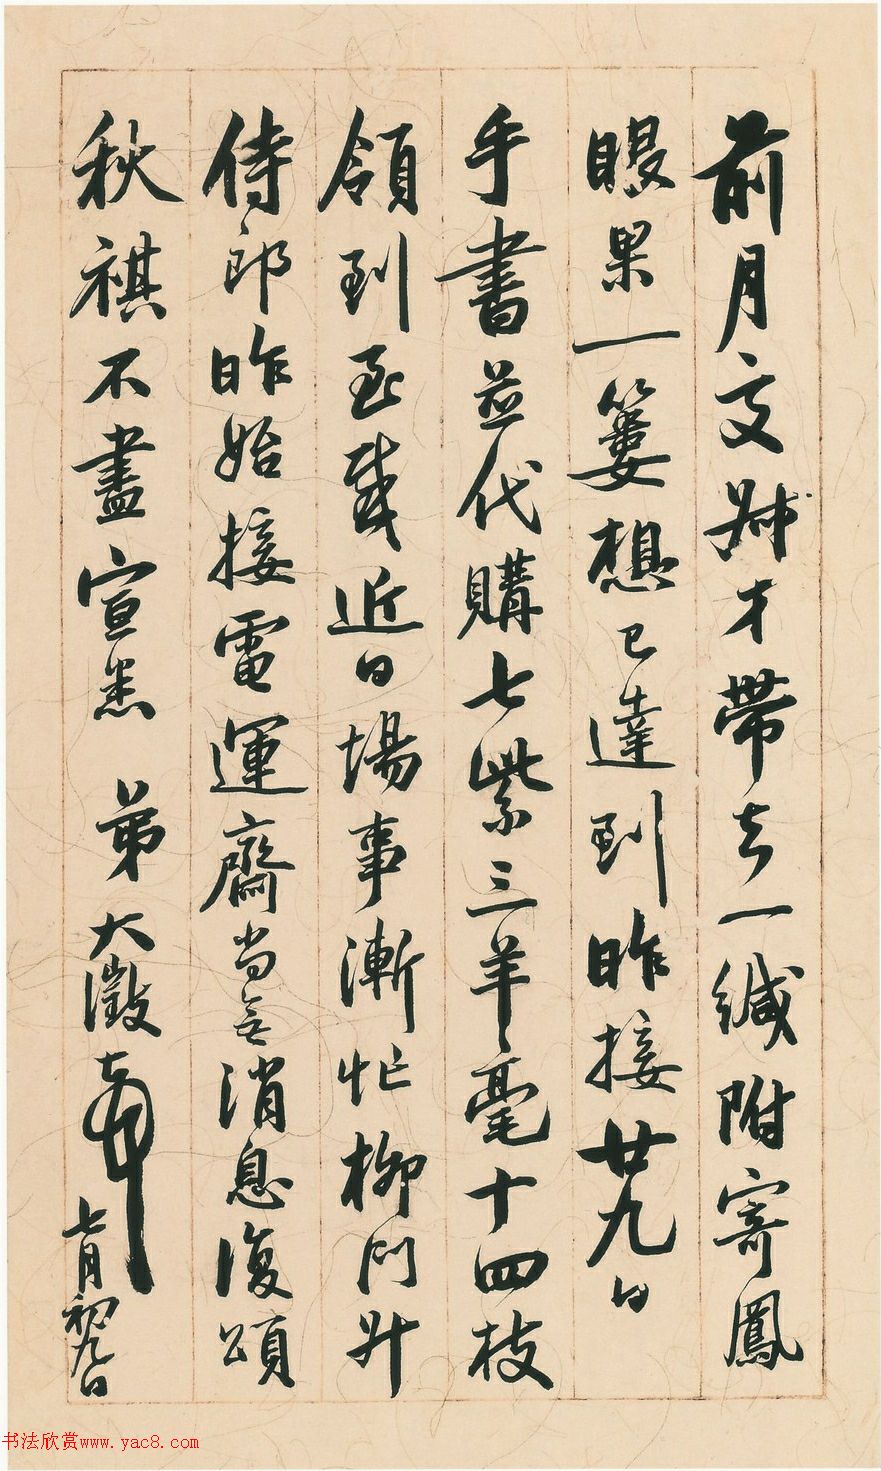 前月交升才帶去一緘附寄鳳
眼果一簍想已達到昨接廿九日
手書並代購七紫三羊毫十四枝
領到至感近日場事漸忙柳門升
侍郎昨始接電運齋尚無消息復頌
秋祺不盡宣悉 弟大澂頓
七月初九日
书法欣赏www.yac8.com